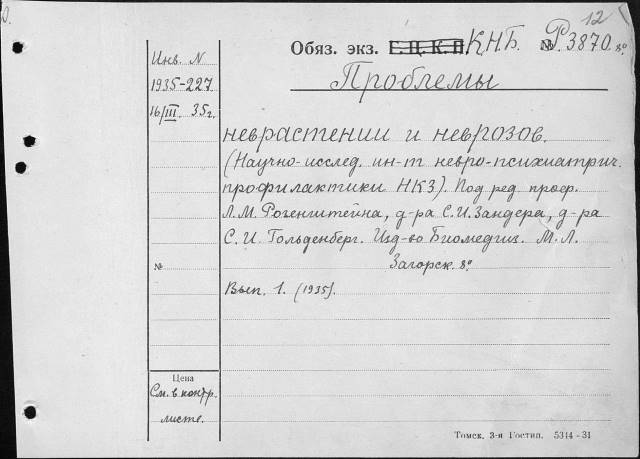 12
Обяз. экз. Г.Ц.К.П. К.Н.Б. № Р3870. 8º
Инв. N
1935-227
16/III. 35г.
Проблемы
неврастении и неврозов.
(Научно-исслед. ин-т невро-психиатрич.
профилактики НКЗ). Под ред. проф.
Л.М. Розенштейна, д-ра С.И. Зандера, д-ра
С. И. Гольденберг. Изд-во Биомедгиз. М.Л.
Загорск. 8º
№
Вып. 1. (1935).
Цена
См. в контр.
листе.
Томск. 3-я Гостип. 5314-31